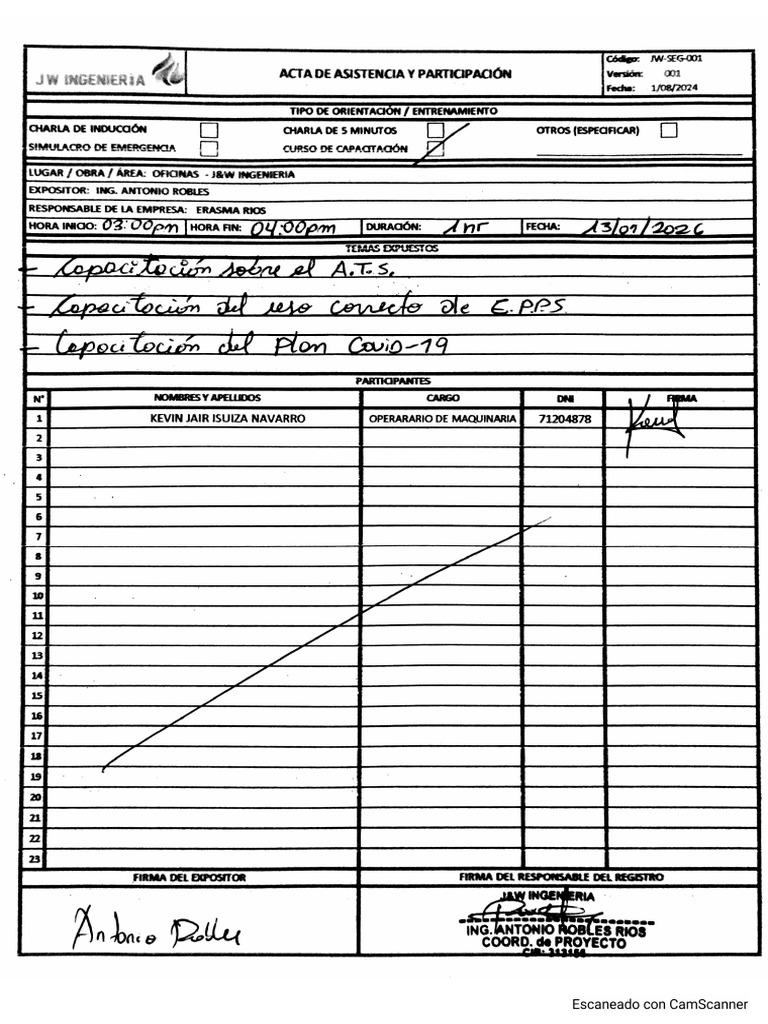 JW INGENIERIA
ACTA DE ASISTENCIA Y PARTICIPACIÓN
Código: JW-SEG-001
Versión: 001
Fecha: 1/08/2024
TIPO DE ORIENTACIÓN / ENTRENAMIENTO
CHARLA DE INDUCCIÓN CHARLA DE 5 MINUTOS OTROS (ESPECIFICAR)
SIMULACRO DE EMERGENCIA CURSO DE CAPACITACIÓN
LUGAR / OBRA / ÁREA: OFICINAS - J&W INGENIERIA
EXPOSITOR: ING. ANTONIO ROBLES
RESPONSABLE DE LA EMPRESA: ERASMA RIOS
HORA INICIO: 03:00pm HORA FIN: 04:00pm DURACIÓN: 1 hr FECHA: 13/01/2026
TEMAS EXPUESTOS
- Capacitación sobre el A.T.S.
- Capacitación del uso correcto de E.P.P.S
- Capacitación del Plan Covid-19
PARTICIPANTES
N° NOMBRES Y APELLIDOS CARGO DNI FIRMA
1 KEVIN JAIR ISUIZA NAVARRO OPERARARIO DE MAQUINARIA 71204878
2
3
4
5
6
7
8
9
10
11
12
13
14
15
16
17
18
19
20
21
22
23
FIRMA DEL EXPOSITOR FIRMA DEL RESPONSABLE DEL REGISTRO
Antonio Robles
J&W INGENIERIA
ING. ANTONIO ROBLES RIOS
COORD. de PROYECTO
Escaneado con CamScanner